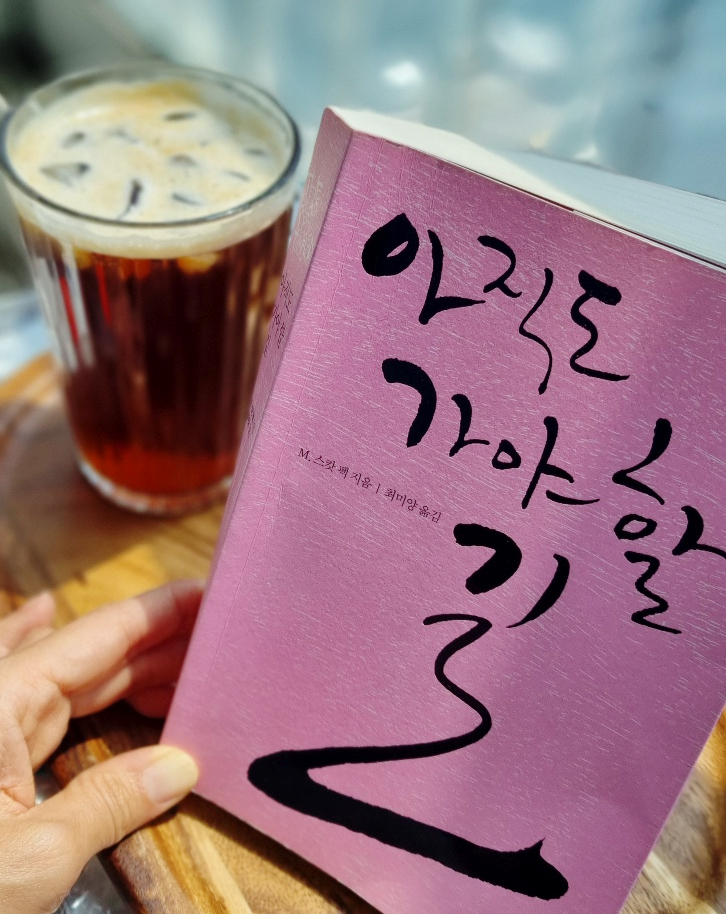 아직도
가야 할
길
M. 스캇 펙 지음 | 최미양 옮김